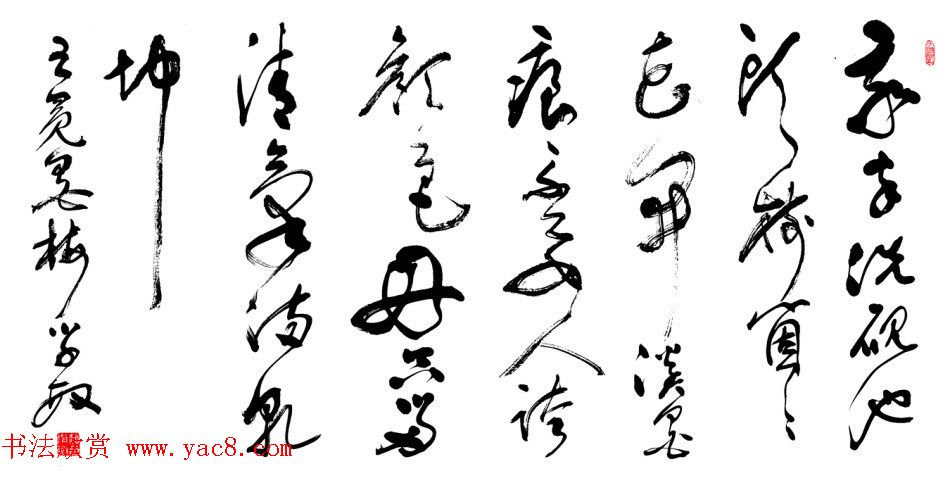 我家洗砚池
头树箇々
花开淡墨
痕不要人誇
颜色只留
清气满乾
坤
王冕墨梅 学
书法欣赏 www.yac8.com